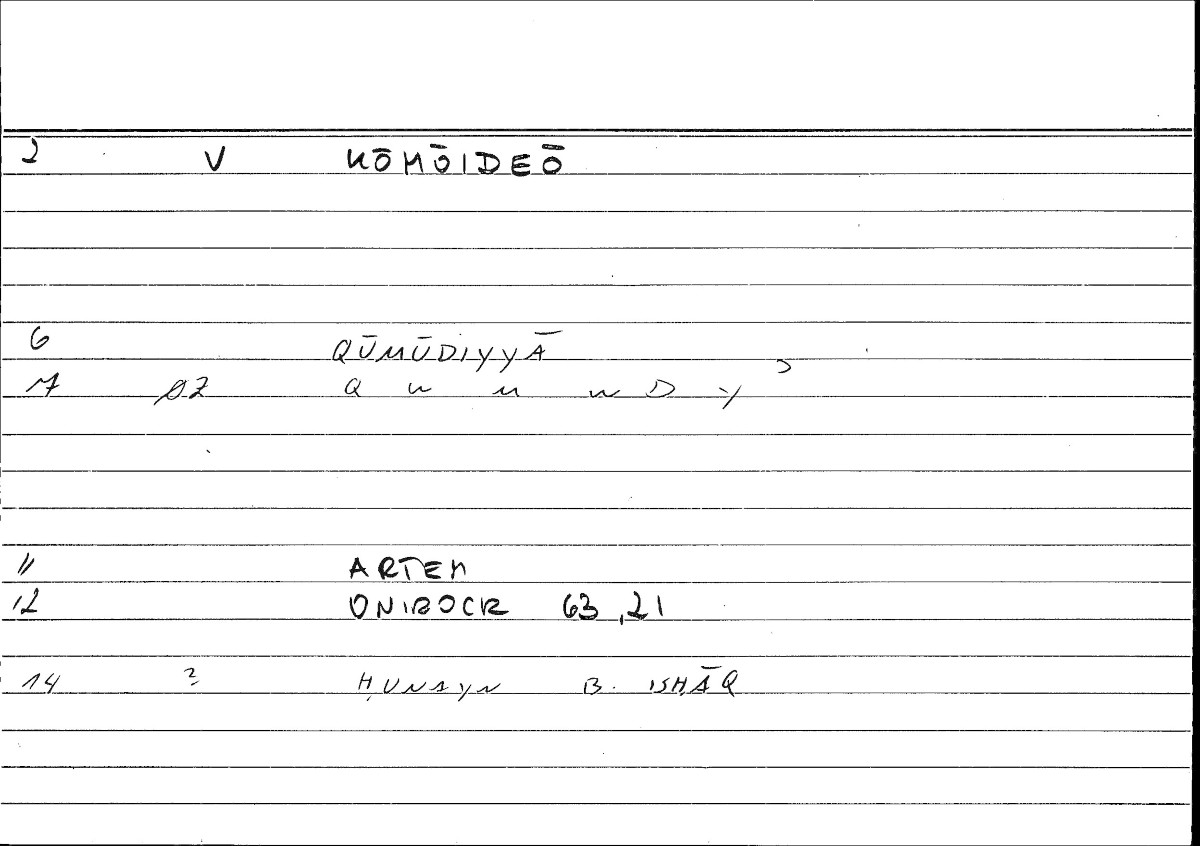 2 V KŌMŌIDEŌ
6 QŪMŪDIYYĀ
7 02 Q W M W D Y ʾ
11 ARTEM
12 ONIROCR 63,21
14 2 ḤUNAYN B. ISḤĀQ